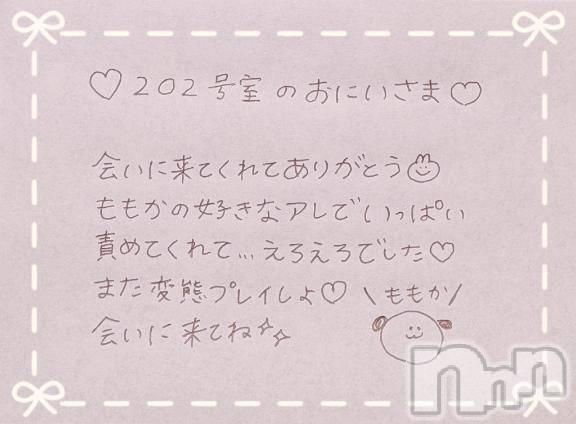 ♡202号室のおにいさま♡
会いに来てくれてありがとう
ももかの好きなアレでいっぱい
責めてくれて...えろえろでした♡
また変態プレイしよ♡ \ももか/
会いに来てね
Nnn